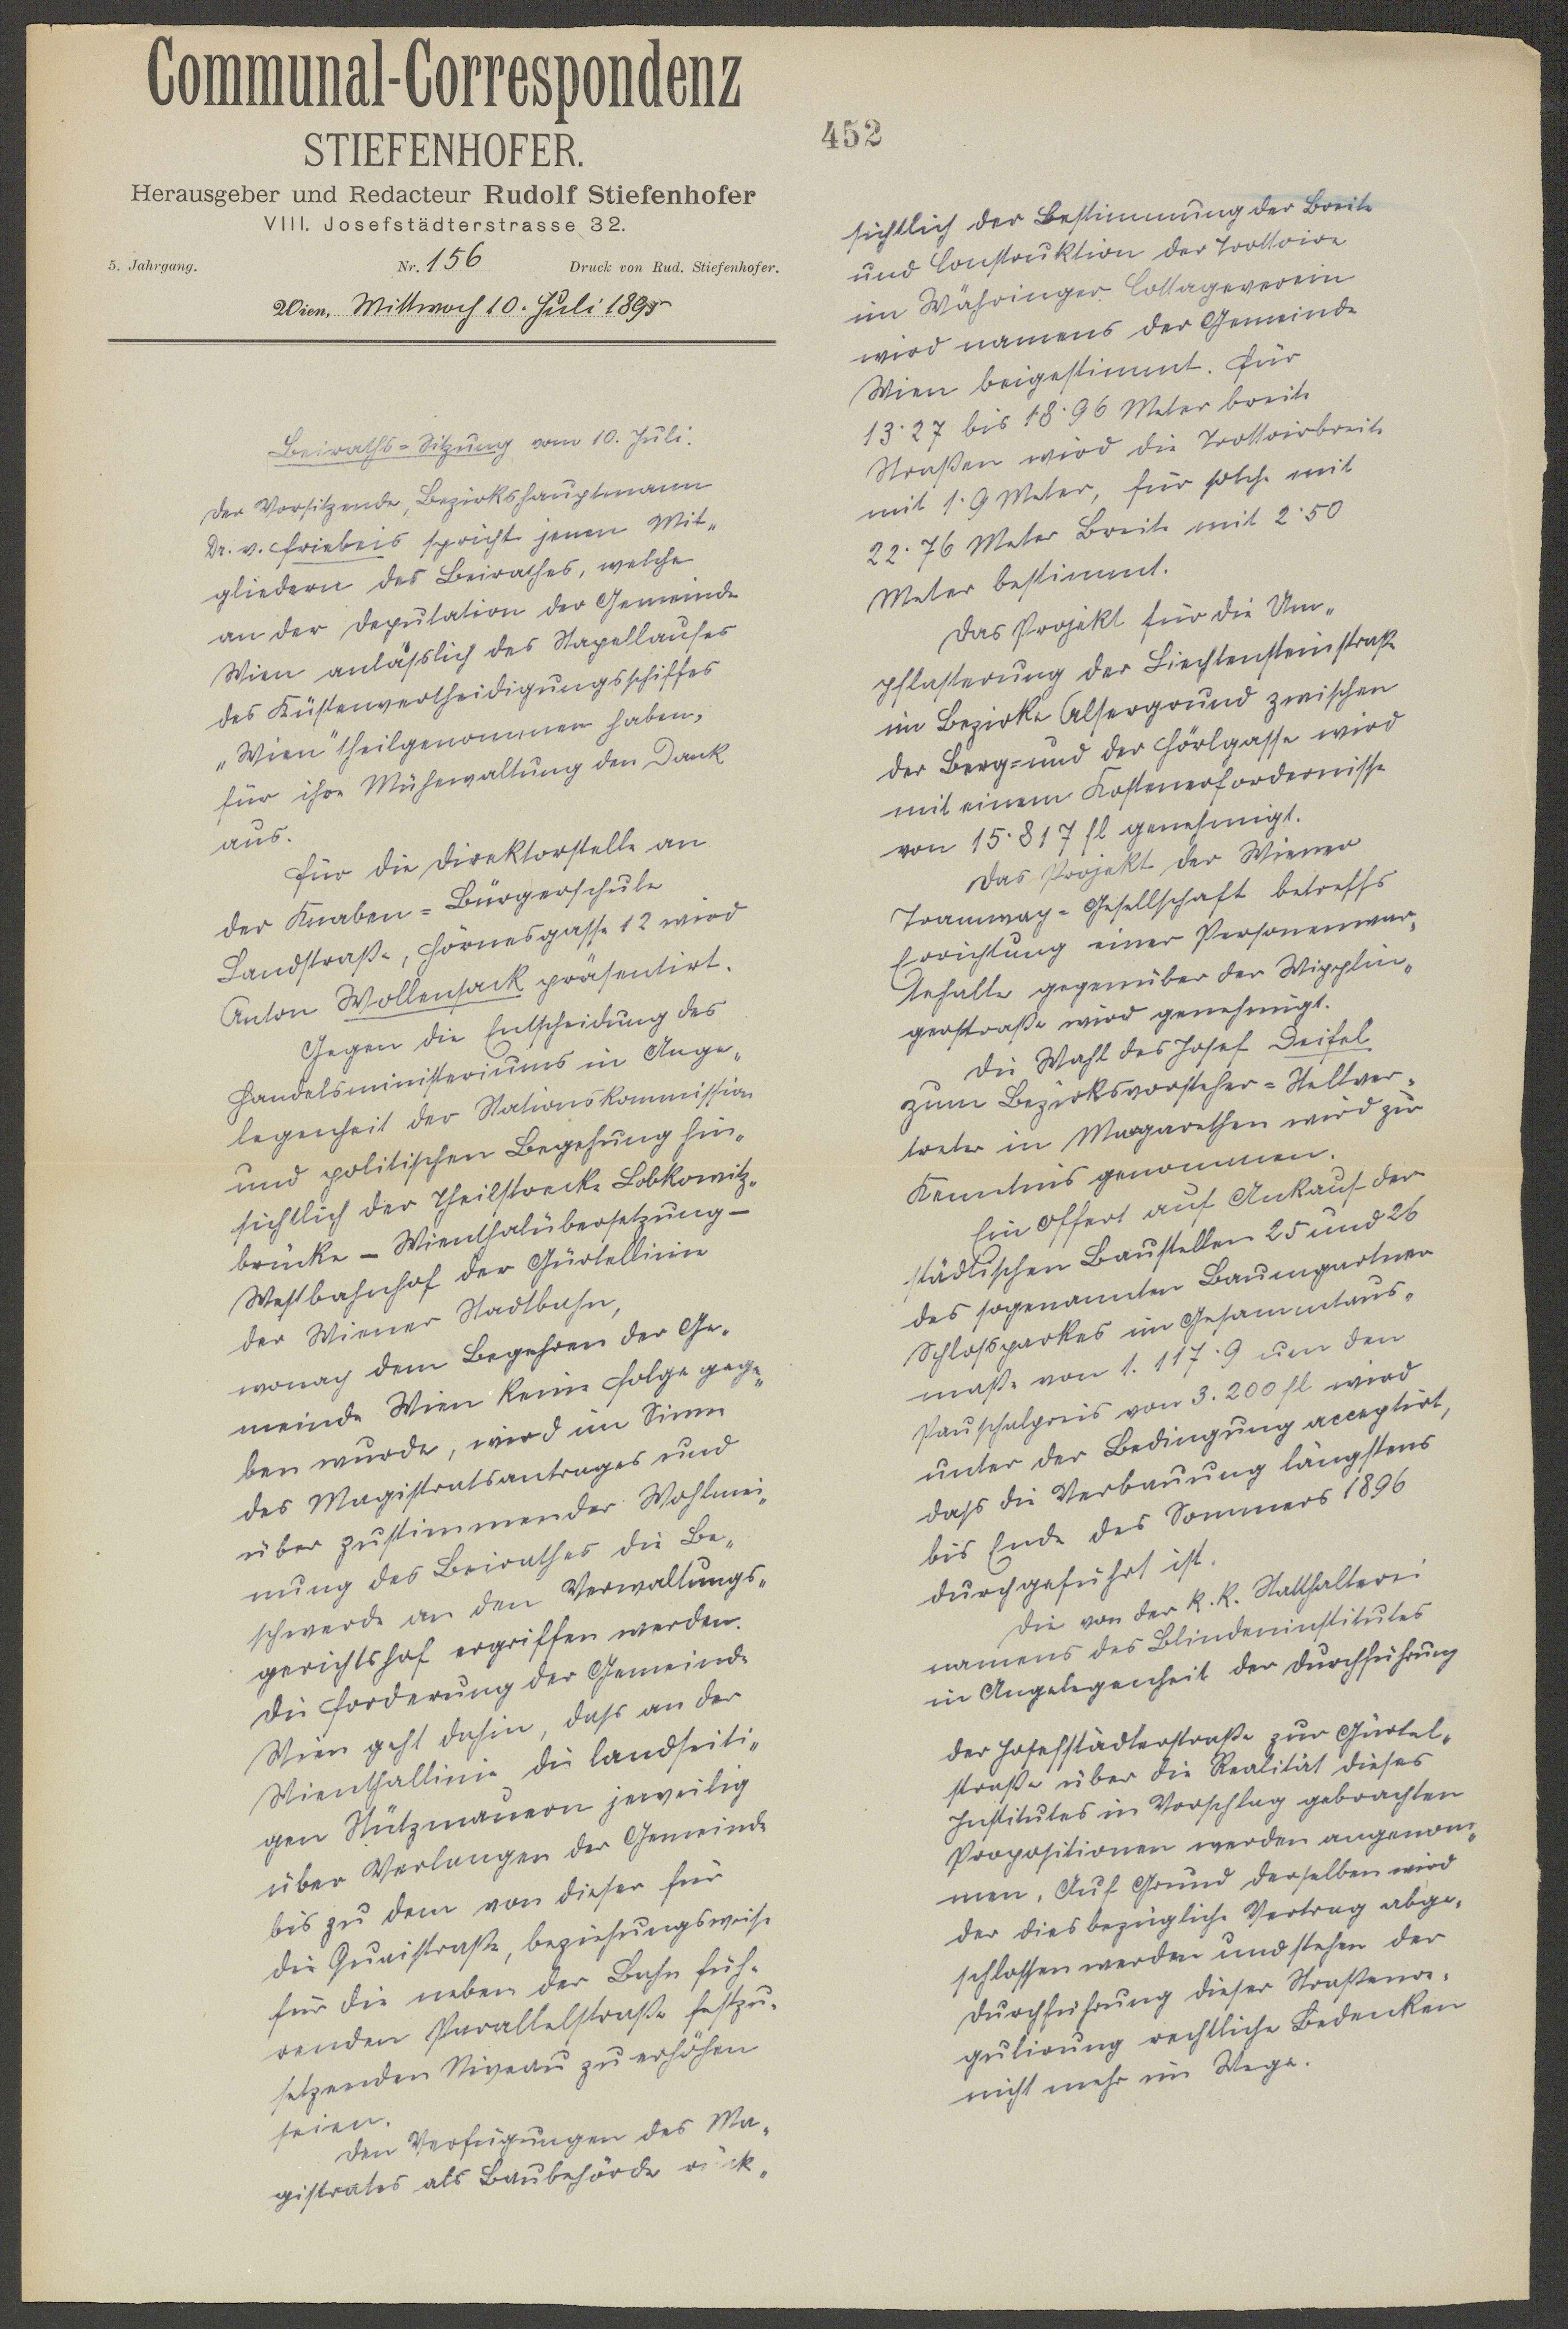 Communal-Correspondenz
STIEFENHOFER.
Herausgeber und Redacteur Rudolf Stiefenhofer
VIII. Josefstädterstrasse 32.
5. Jahrgang. Nr. 156 Druck von Rud. Stiefenhofer.
Wien, Mittwoch 10. Juli 1895
Beiraths=Sitzung vom 10. Juli.
Der Vorsitzende, Bezirkshauptmann
Dr. v. Friebeis spricht jenen Mit„
gliedern des Beirathes, welche
an der Deputation der Gemeinde
Wien anläßlich des Stapellaufes
des Küstenvertheidigungsschiffes
„Wien" theilgenommen haben,
für ihre Mühewaltung den Dank
aus.
Für die Direktorstelle an
der Knaben=Bürgerschule
Landstraße, Hörnesgasse 12 wird
Anton Wollensack präsentirt.
Gegen die Entscheidung des
Handelsministeriums in Ange„
legenheit der Stationskommission
und politischen Begehung hin„
sichtlich der Theilstrecke Lobkowitz„
brücke – Wienthalübersetzung –
Westbahnhof der Gürtellinie
der Wiener Stadtbahn,
wonach dem Begehren der Ge„
meinde Wien keine Folge gege„
ben wurde, wird im Sinne
des Magistratsantrages und
über zustimmender Wohlmei„
nung des Beirathes die Be„
schwerde an den Verwaltungs„
gerichtshof ergriffen werden.
Die Forderung der Gemeinde
Wien geht dahin, daß an der
Wienthallinie die landseiti„
gen Stützmauern jeweilig
über Verlangen der Gemeinde
bis zu dem von dieser für
die Quaistraße, beziehungsweise
für die neben der Bahn füh„
renden Parallelstraße festzu„
setzenden Niveau zu erhöhen
seien.
Den Verfügungen des Ma„
gistrates als Baubehörde rück„
452
sichtlich der Bestimmung der Breite
und Construktion der Trottoire
im Währinger Cottageverein
wird namens der Gemeinde
Wien beigestimmt. Für
13·27 bis 18·96 Meter breite
Straßen wird die Trottoirbreite
mit 1·9 Meter, für solche mit
22·76 Meter Breite mit 2·50
Meter bestimmt.
Das Projekt für die Um„
pflasterung der Liechtensteinstraße
im Bezirke Alsergrund zwischen
der Berg= und der Hörlgasse wird
mit einem Kostenerfordernisse
von 15·817 fl genehmigt.
Das Projekt der Wiener
Tramway=Gesellschaft betreffs
Errichtung einer Personenwar„
tehalle gegenüber der Wipplin„
gerstraße wird genehmigt.
Die Wahl des Josef Deifel
zum Bezirksvorsteher=Stellver„
treter in Margarethen wird zur
Kenntnis genommen.
Ein Offert auf Ankauf der
städtischen Baustellen 25 und 26
des sogenannten Baumgartner
Schloßparkes im Gesammtaus„
maße von 1.117·9 um den
Pauschalpreis von 3.200 fl wird
unter der Bedingung acceptirt,
daß die Verbauung längstens
bis Ende des Sommers 1896
durchgeführt ist.
Die von der k.k. Statthalterei
namens des Blindeninstitutes
in Angelegenheit der Durchführung
der Josefstädterstraße zur Gürtel„
straße über die Realität dieses
Institutes in Vorschlag gebrachten
Propositionen werden angenom„
men. Auf Grund derselben wird
der diesbezügliche Vertrag abge„
schlossen werden und stehen der
Durchführung dieser Straßenre„
gulirung rechtliche Bedenken
nicht mehr im Wege.